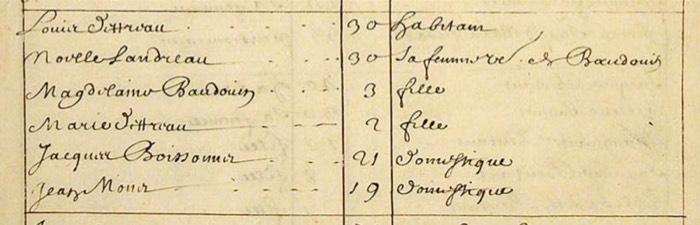 Louis D'ittreau 30 habitant
Noelle Landreau 30 sa femme ve. de Baudouin
Magdelaine Baudouin 3 fille
Marie D'ittreau 2 fille
Jacques Boissonnier 21 domestique
Jean 19 domestique